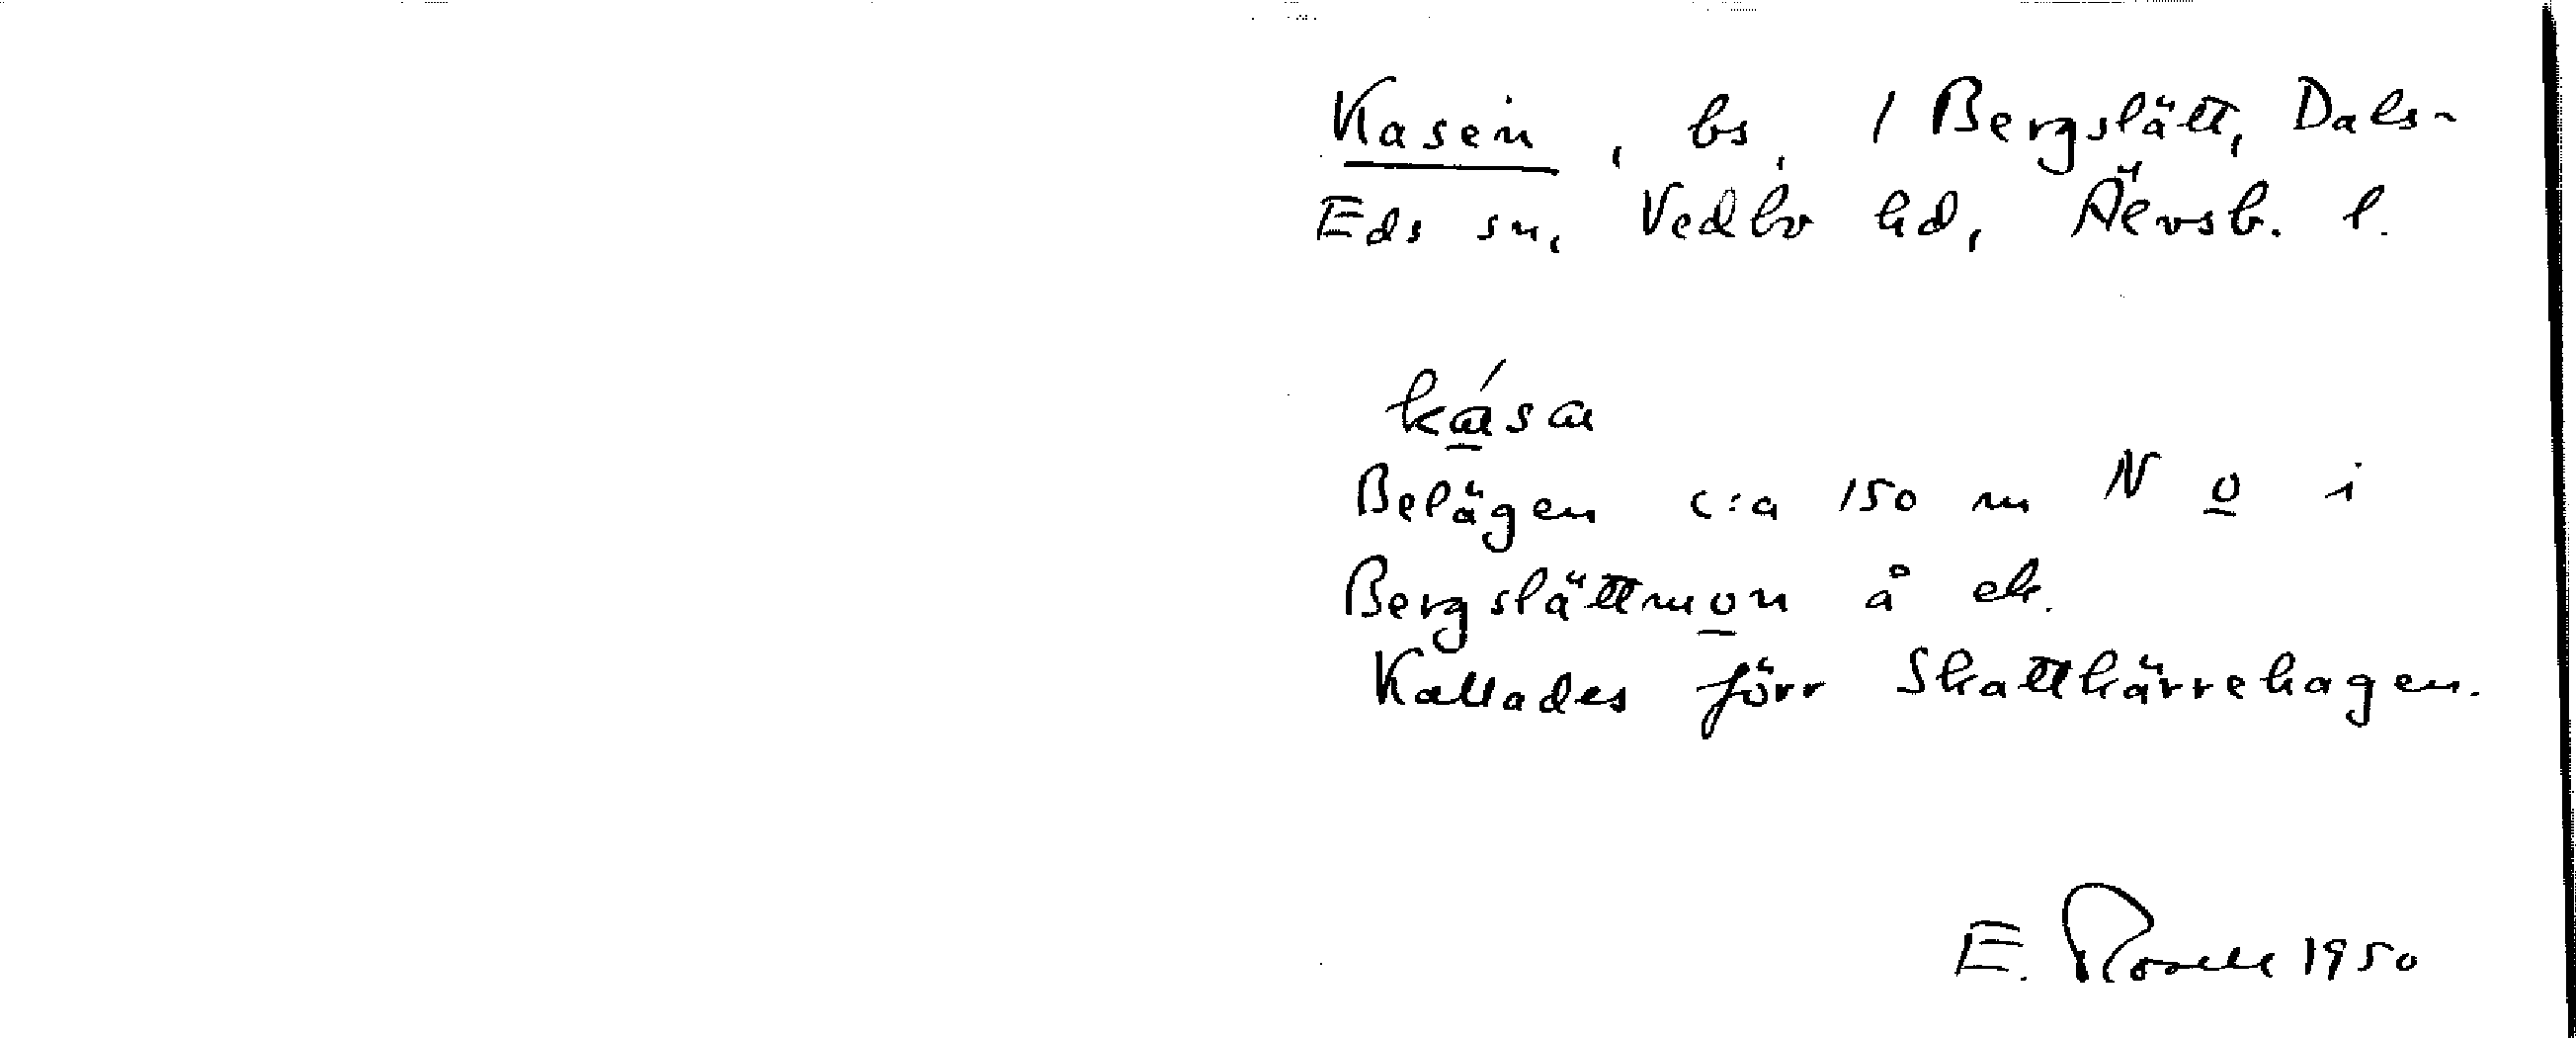 Kasen, bs, / Bergslätt, Dals-
Eds sn, Vedbo hd, Älvsb. l.
kása
Belägen c:a 150 m N o i
Bergslättmon å ek.
Kallades förr Skattkärrehagen.
E. Rosell 1950